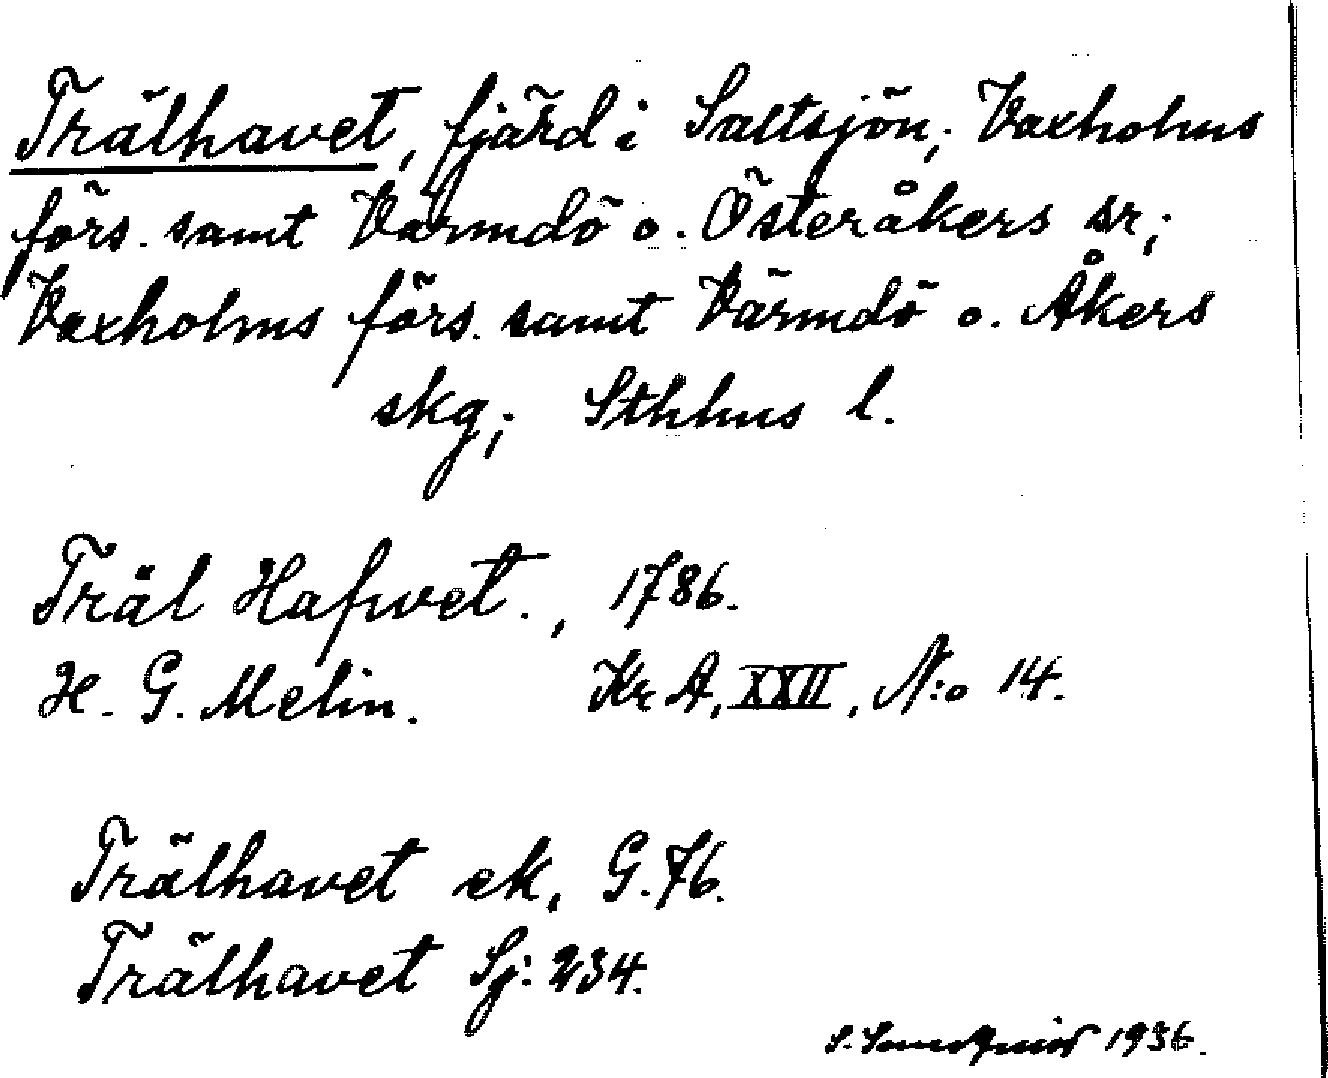 Trälhavet, fjärd i Saltsjön; Vaxholms
förs. samt Värmdö o. Österåkers sr;
Vaxholms förs. samt Värmdö o. Åkers
skg; Sthlms l.
Träl Hafwet., 1786.
H. G. Melin. Kr A, XXII, N:o 14.
Trälhavet ek, G. 76.
Trälhavet Sj: 234.
S. 1936.